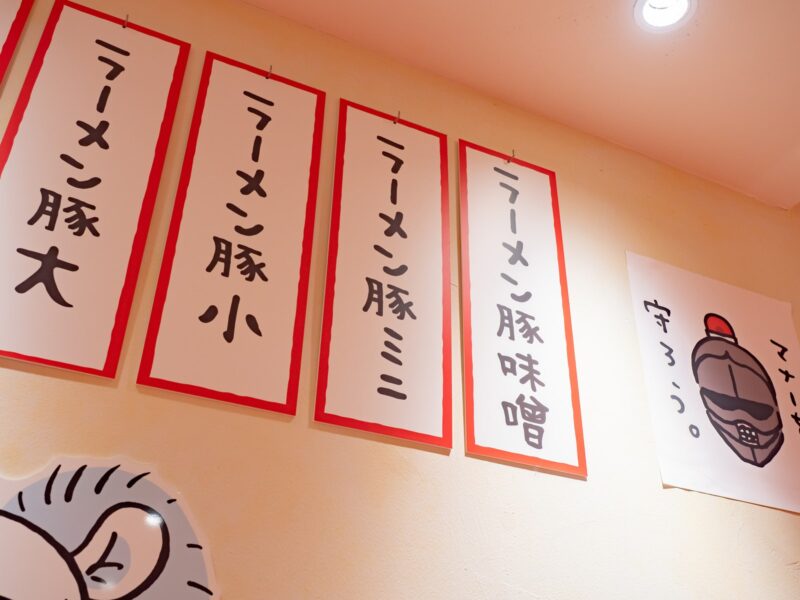 ラーメン豚大
ラーメン豚小
ラーメン豚ミニ
ラーメン豚味噌
マナーを
守ろう。